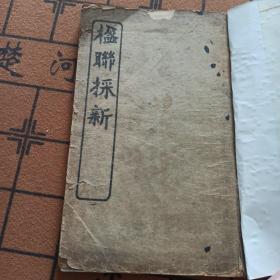 楹聯採新
楚河